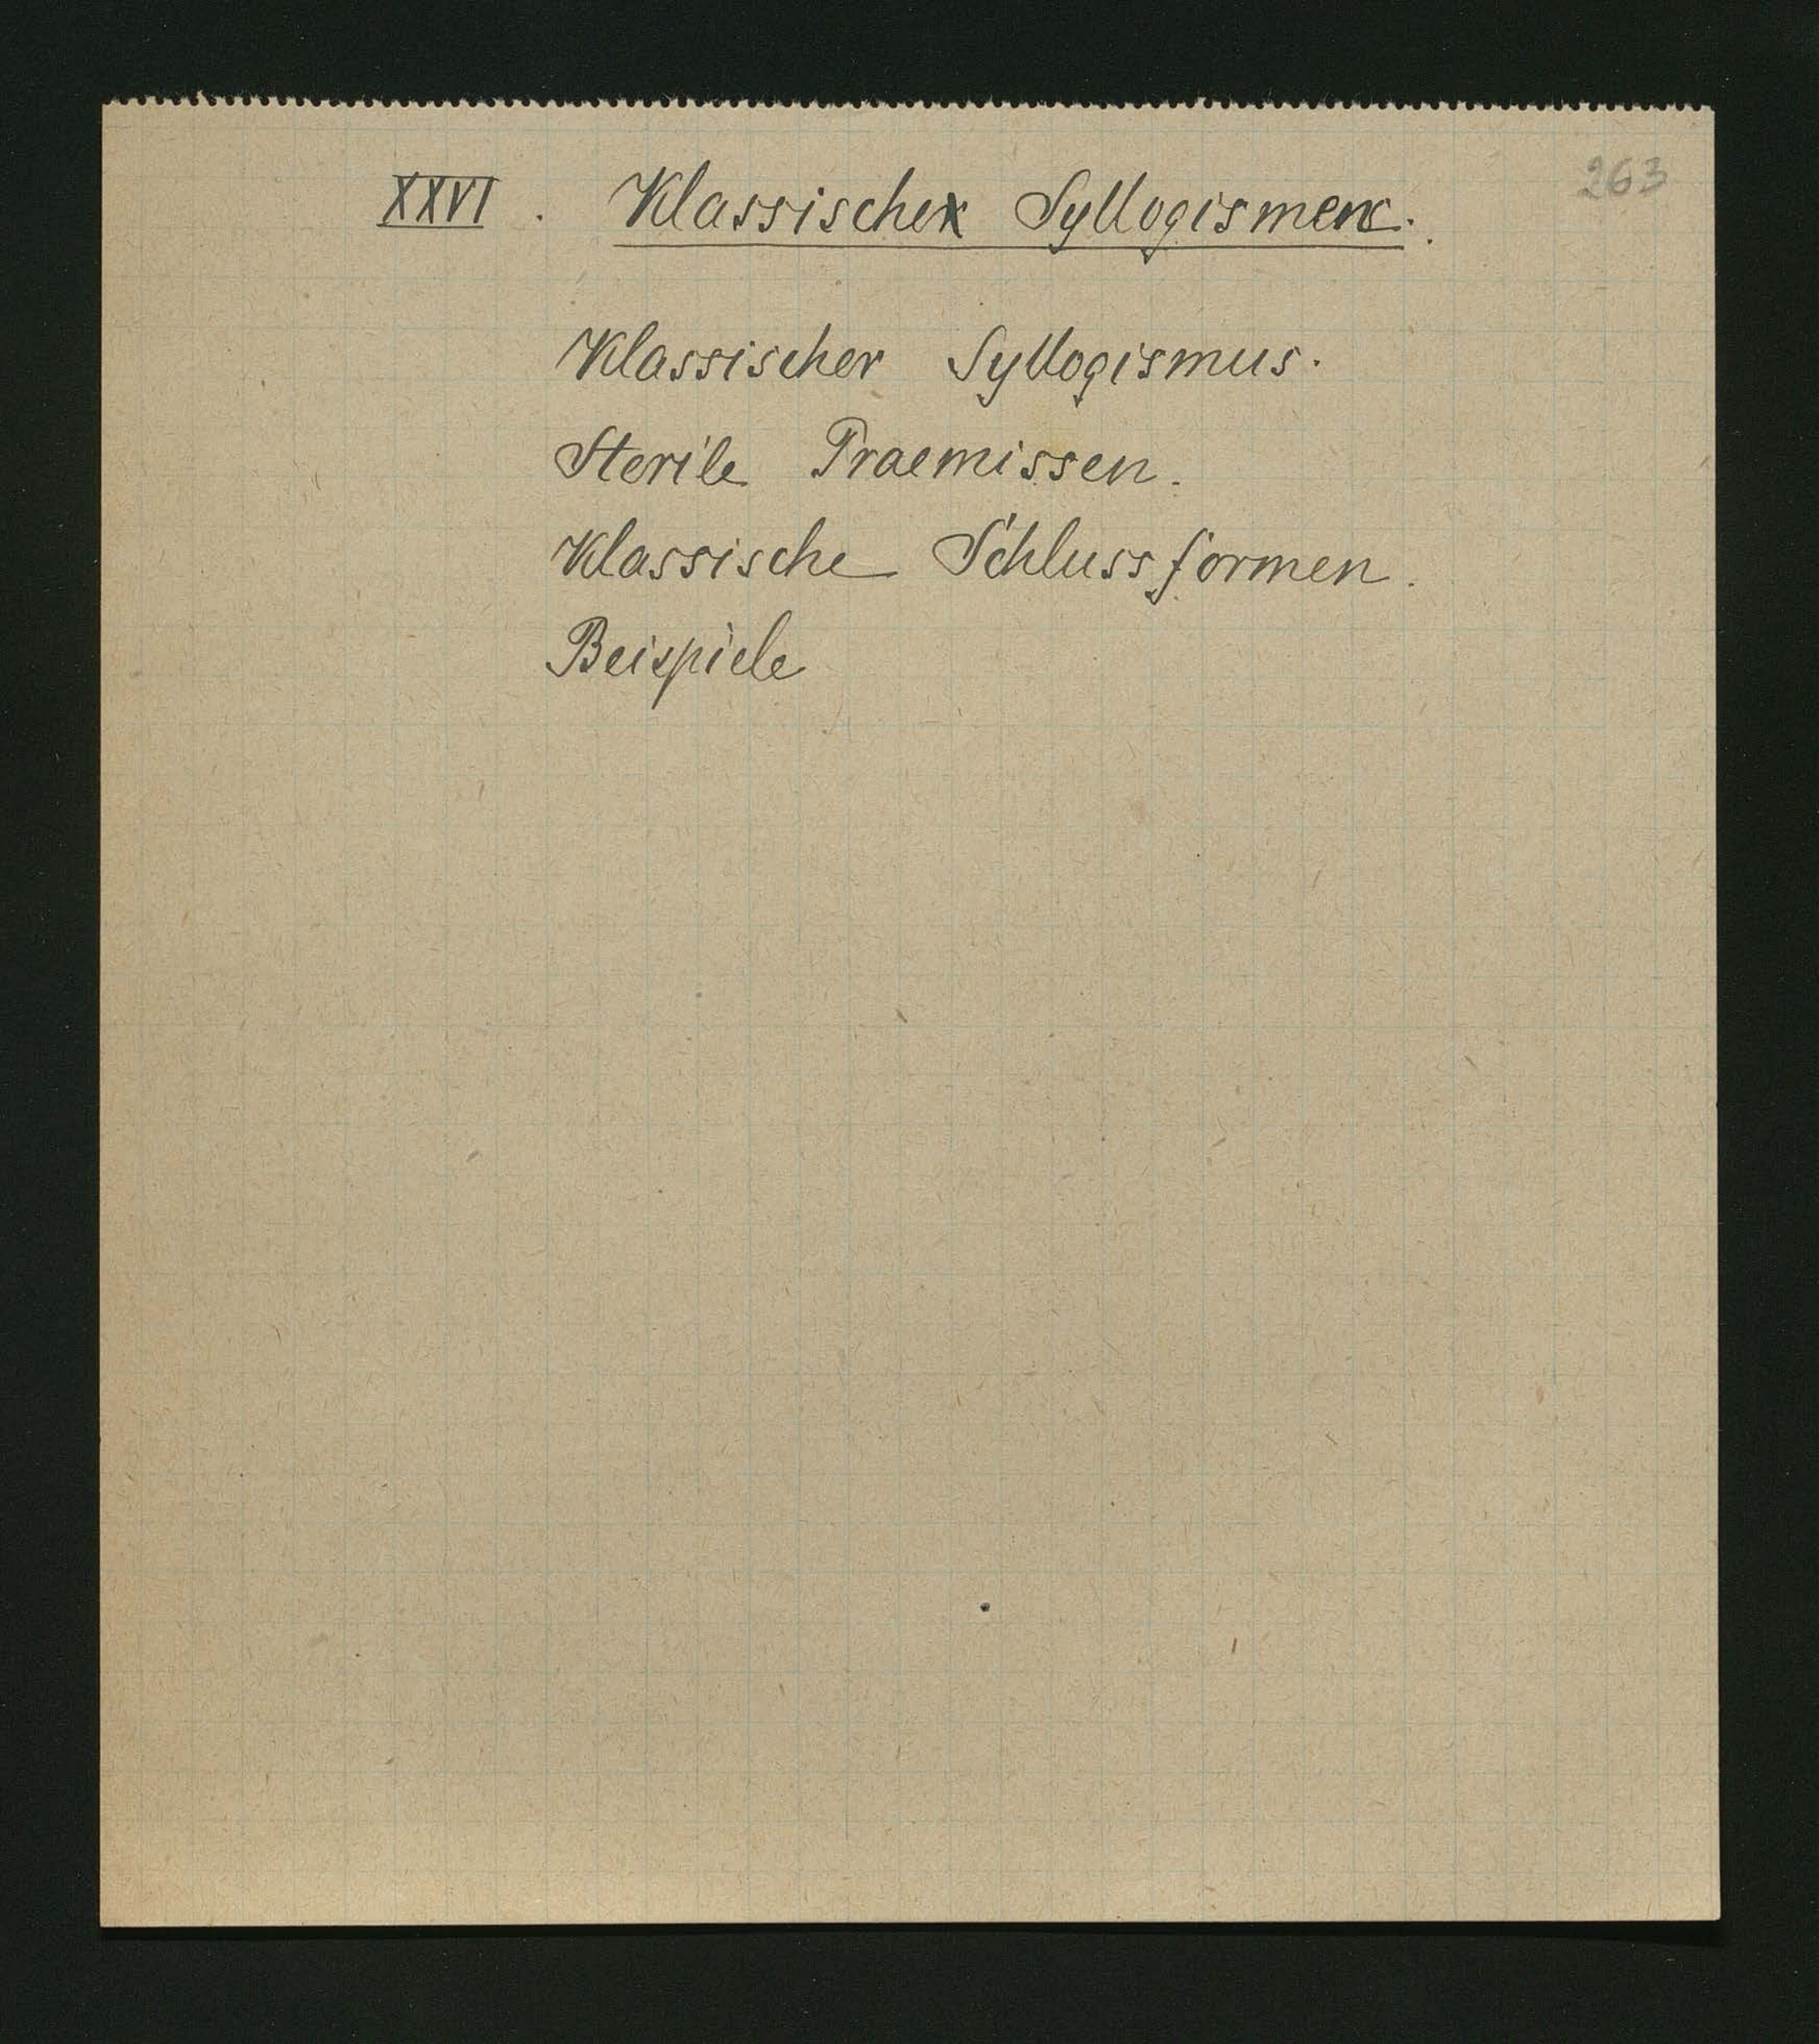 263
XXVI. Klassische Syllogismen.
Klassischer Syllogismus.
Sterile Praemissen.
Klassische Schlussformen.
Beispiele